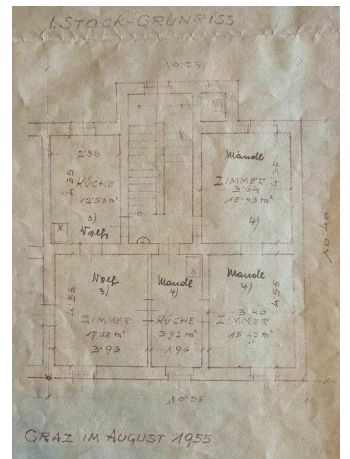 1. STOCK-GRUNRISS
10·23
2·88
KÜCHE
12·53 m²
4·35
3)
Wolf
Mandl
ZIMMER
3·64
15·83 m²
4·35
4)
10·40
Wolf
3)
4·55
ZIMMER
17·88 m²
3·93
Mandl
4)
KÜCHE
1·96
Mandl
4)
3·40
4·55
ZIMMER
15·47 m²
10·95
GRAZ IM AUGUST 1955